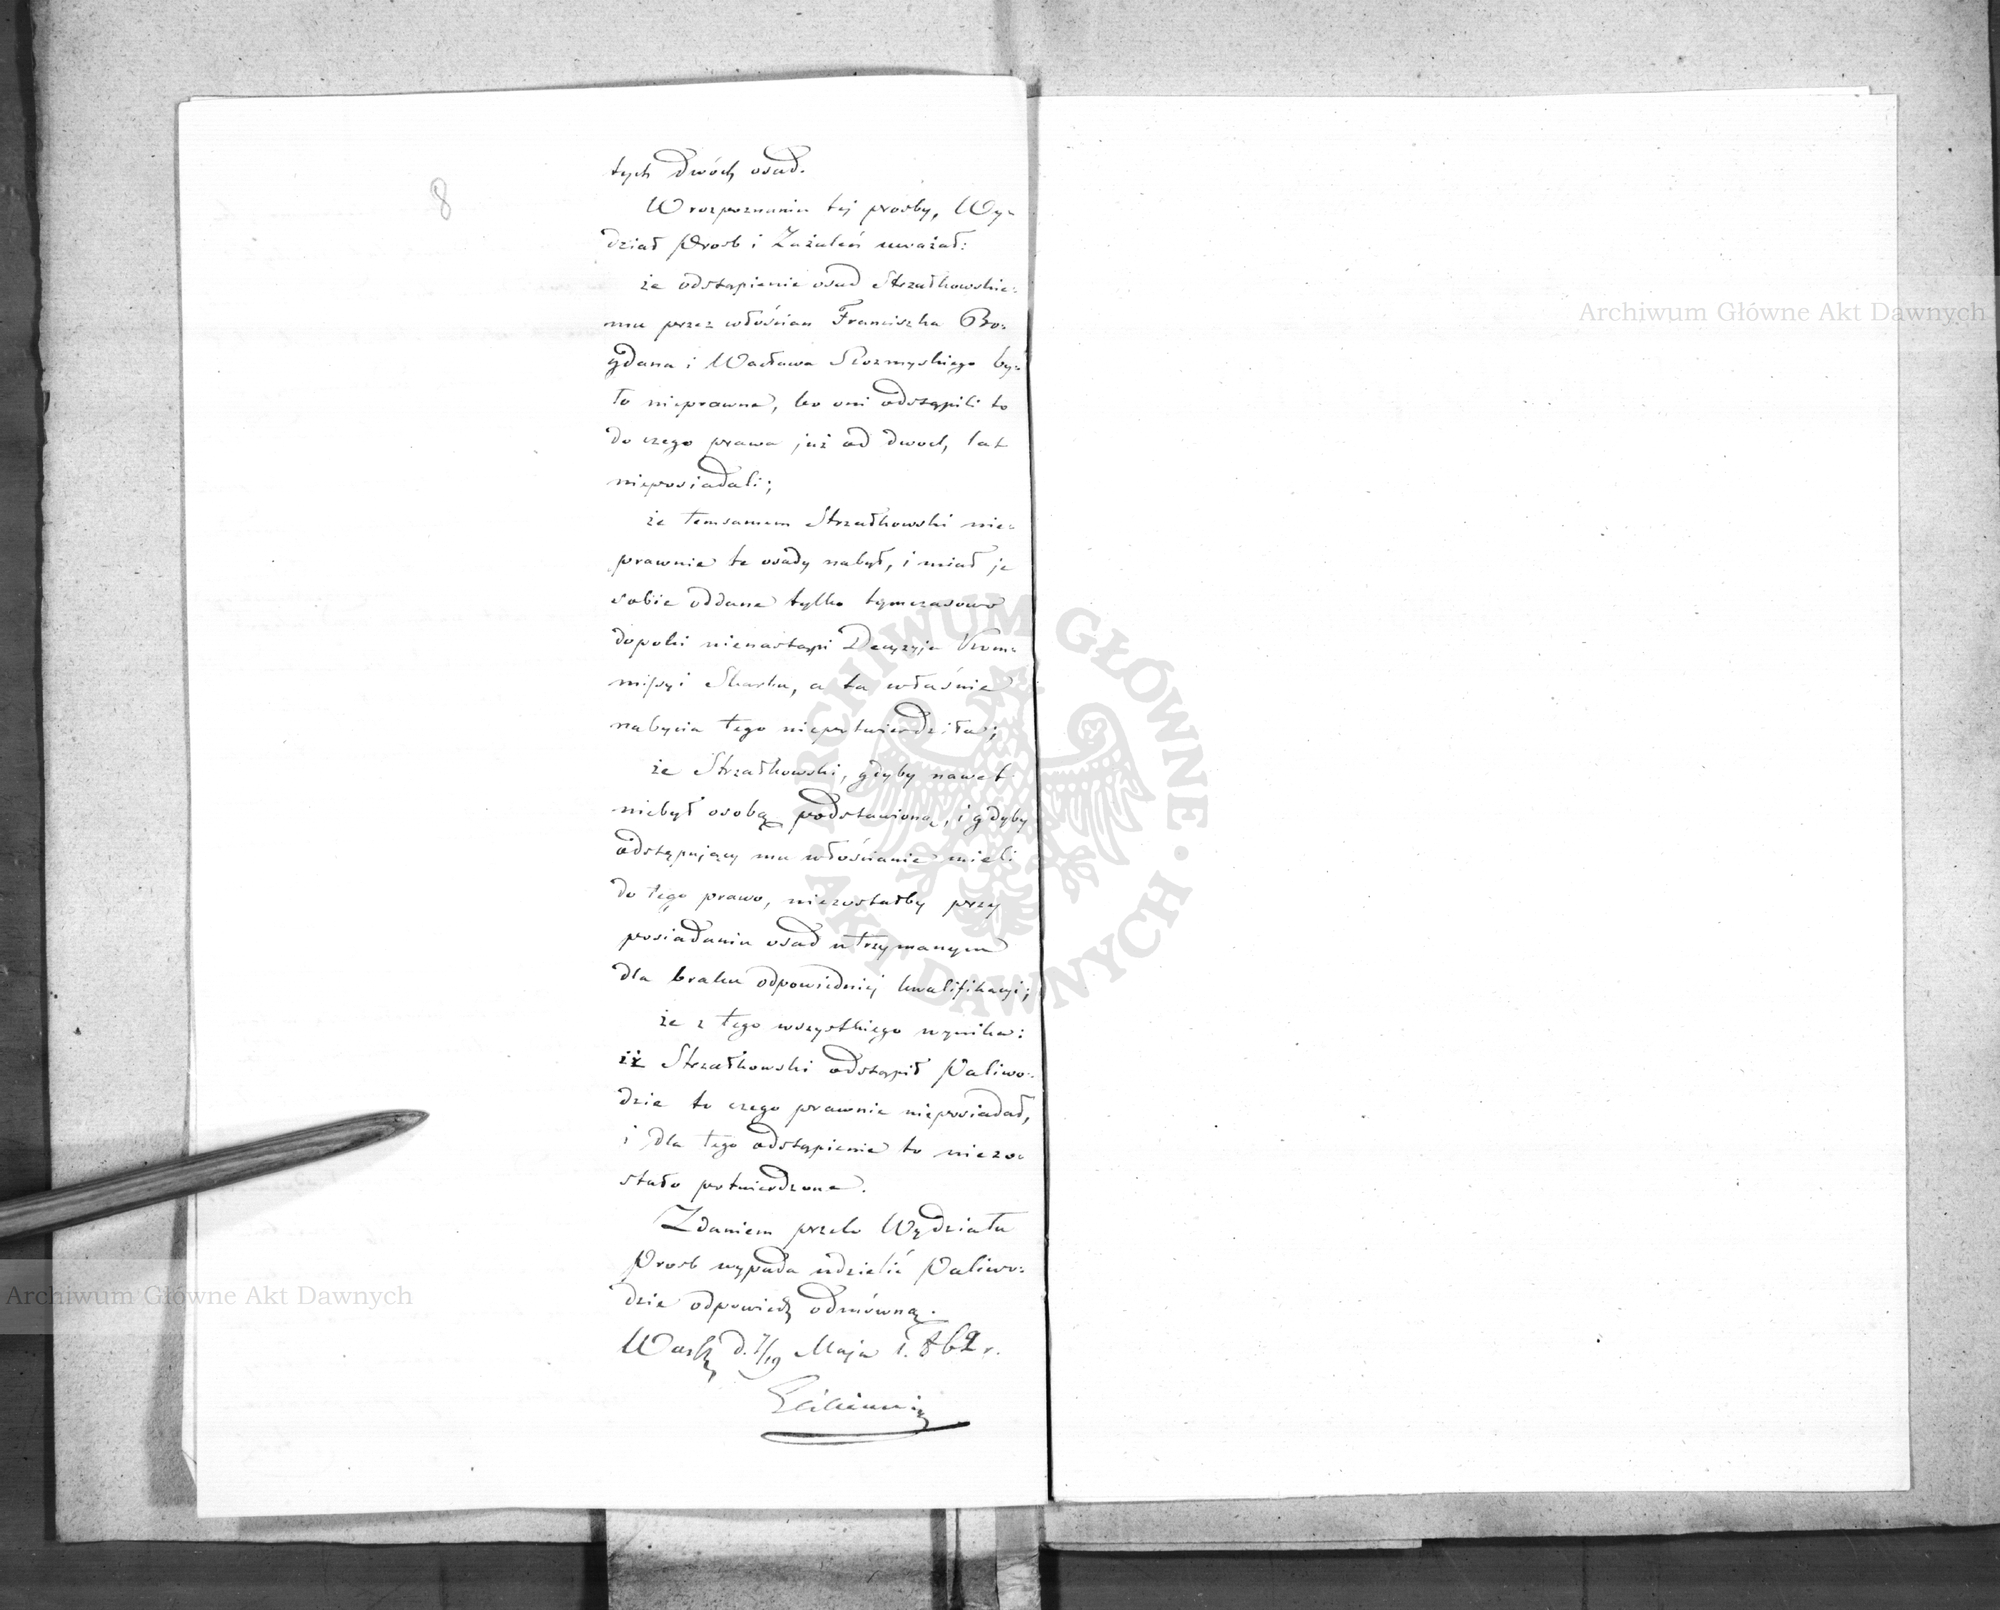 8
tych dwóch osad.
W rozpoznaniu tej prosby, Wy=
dział Prosb i Zażaleń uważał:
że odstąpienie osad Strzałkowskie=
mu przez włóścian Franciszka Bo=
gdana i Wacława by=
ło nieprawne, bo oni odstąpili to
do czego prawa już od dwoch lat
nieposiadali;
że temsamem Strzałkowski nie=
prawnie te osady nabył, i miał je
sobie oddane tylko tymczasowo
dopoki nienastąpi Decyzyja Kom=
missyi Skarbu, a ta właśnie
nabycia tego niepotwierdziła;
że Strzałkowski, gdyby nawet
niebył osobą podstawioną, i gdyby
odstępujący mu włościanie mieli
do tego prawo, niezostałby przy
posiadaniu osad utrzymanym
dla braku odpowiedniej kwalifikacyi;
że z tego wszystkiego wynika:
iż Strzałkowski odstąpił Paliwo=
dzie to czego prawnie nieposiadał,
i dla tego odstąpienie to niezo=
stało potwierdzone.
Zdaniem przeto Wydziału
Prosb wypada udzielić Paliwo=
dzie odpowiedź odmówną.
Warsz d. 7/19 Maja 1862 r.
Archiwum Główne Akt Dawnych
Archiwum Główne Akt Dawnych
ARCHIWUM GŁÓWNE · AKT DAWNYCH ·